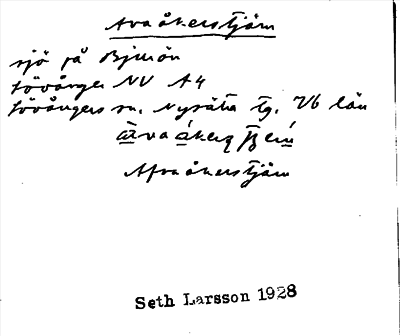 Ava åkerstjärn
sjö på Bjurön
Lövånger NV A4
Lövångers sn. Nysätra tg. Vb län
Afvaåkerstjärn
Seth Larsson 1928